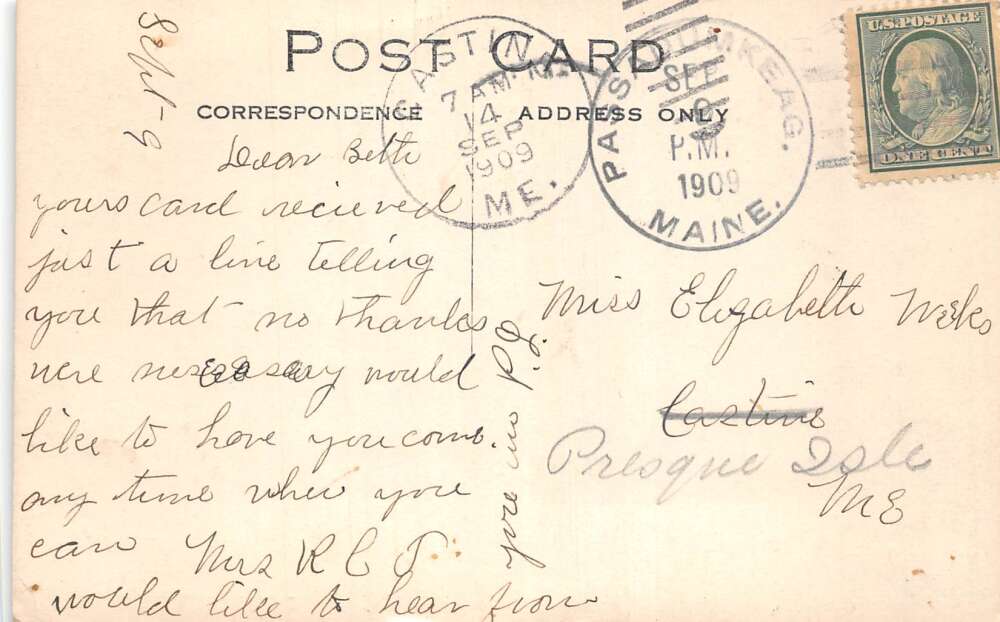 POST CARD
CORRESPONDENCE
ADDRESS ONLY
U.S. POSTAGE
ONE CENT
CASTINE
7 AM
14
SEP
1909
ME.
PASSADUMKEAG.
SEP
P.M.
1909
MAINE.
Sept-9
Dear Beth
yours card recieved
just a line telling
you that no thanks
were nessesary would
like to have you come.
any time when you
can Mrs R C T
would like to hear from
you in P.I.
Miss Elizabeth Weeks
Castine
Presque Isle
ME